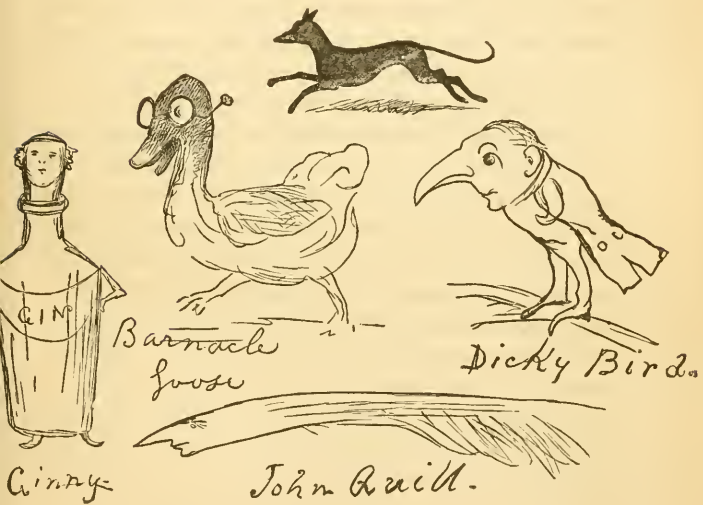 GIN
Barnacle
Goose
Dicky Bird.
Ginny
John Quill.